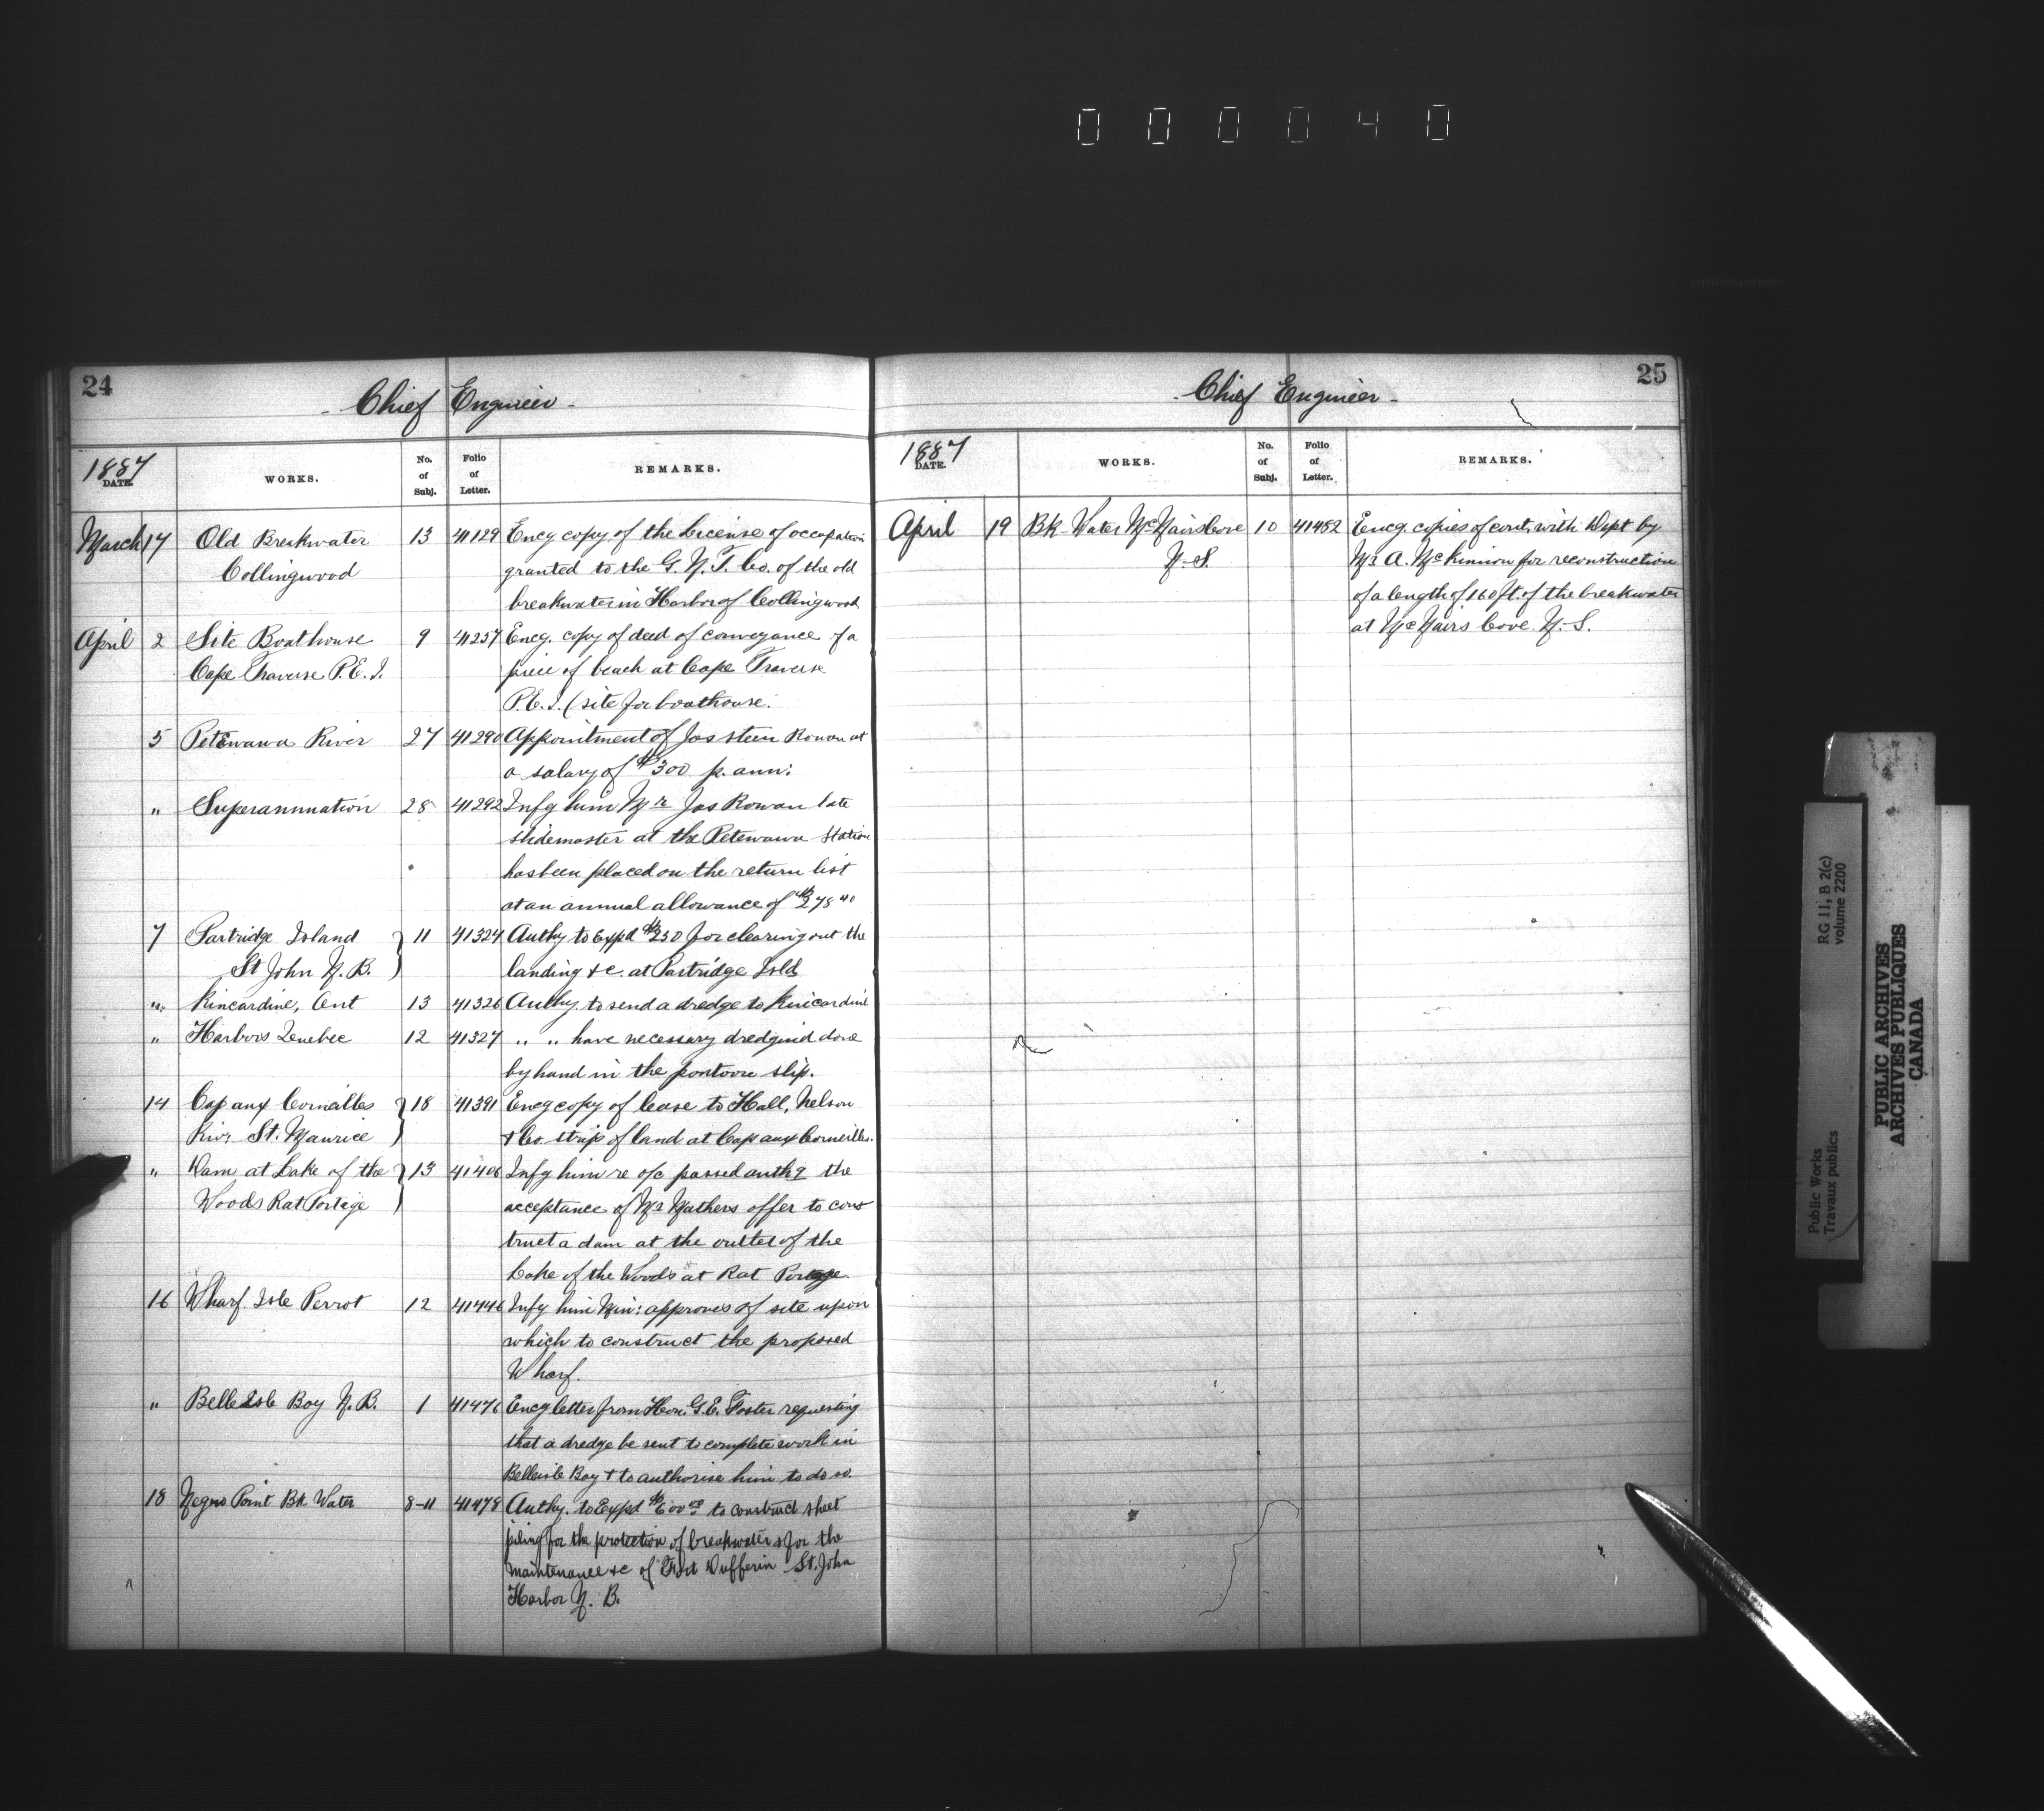 0 0 0 0 4 0
24
- Chief Engineer -
1887
DATE.
WORKS.
No. of Subj.
Folio of Letter.
REMARKS.
March 17 Old Breakwater 13 41129 Encg copy of the License of occupation
Collingwood granted to the G. N. T. Co. of the old
breakwater in Harbor of Collingwood
April 2 Site Boathouse 9 41257 Encg. copy of deed of conveyance of a
Cape Traverse P.E.I. piece of beach at Cape Traverse
P.E.I. (site for boathouse.
5 Petewawa River 27 41290 Appointment of Jas steen Rowan at
a salary of $300 p. ann:
" Superannuation 28 41292 Infg him Mr Jas Rowan late
slidemaster at the Petewawa Station
has been placed on the return list
at an annual allowance of $278 40
7 Partridge Island } 11 41324 Authy to Expd $250 for clearing out the
St John N. B. ) landing &c. at Partridge Isld
" Kincardine, Ont 13 41326 Authy. to send a dredge to Kincardine
" Harbors Quebec 12 41327 " " have necessary dredgind done
by hand in the pontoon slip.
14 Cap aux Corneilles } 18 41391 Encg copy of lease to Hall, Nelson
Rivr St. Maurice ) & Co. strip of land at Cap aux Corneilles.
" Dam at Lake of the } 13 41406 Infg him re o/c passed authg the
Woods Rat Portage ) acceptance of Mr Mathers offer to cons
truct a dam at the outlet of the
Lake of the Woods at Rat Portage.
16 Wharf. Isle Perrot 12 41446 Infg him Min: approves of site upon
which to construct the proposed
Wharf.
" Belle Isle Bay N. B. 1 41476 Encg letter from Hon. G.E. Foster requesting
that a dredge be sent to complete work in
Belleisle Bay & to authorise him to do so.
18 Negro Point Bk Water 8-11 41478 Authy. to Expd $600 00 to construct sheet
piling for the protection of breakwater & for the
maintenance &c of Fort Dufferin St. John
Harbor N. B.
25
- Chief Engineer -
1887
DATE.
WORKS.
No. of Subj.
Folio of Letter.
REMARKS.
April 19 Bk Water McNairs Cove 10 41482 Encg. copies of cont. with Dept by
N.S. Mr A. McKinnon for reconstruction
of a length of 160 ft. of the breakwater
at McNairs Cove N.S.
RG 11, B 2(c)
volume 2200
Public Works
Travaux publics
PUBLIC ARCHIVES
ARCHIVES PUBLIQUES
CANADA